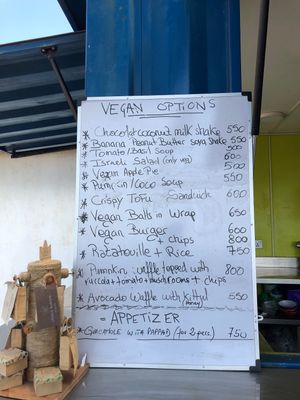 VEGAN OPTIONS
* Chocolat coconut milk shake 550
* Banana Peanut Butter soya Shake 550
* Tomato/Basil Soup 500
* Israeli Salad (only veg) 600
* Vegan Apple Pie 500
* Pumpkin/Coco Soup 550
* Crispy Tofu Sandwich 600
* Vegan Balls in Wrap 650
* Vegan Burger 600
+ chips 800
* Ratatouille + Rice 750
* Pumpkin waffle topped with 800
ruccola+tomato+mushrooms + chips
* Avocado Waffle with Kittul 550
(Honey)
= APPETIZER
* Guacamole with PAPPAD (for 2 pers.) 750